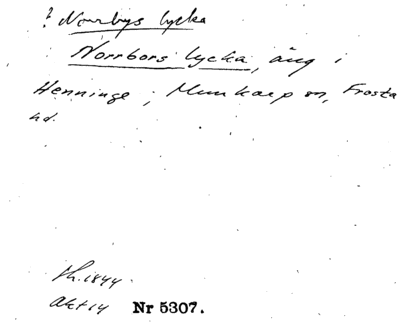 ? Norrbys lycka
Norrbors lycka, äng i
Henninge; Munkarp sn, Frosta
hd.
sk. 1844.
akt 14 Nr 5307.